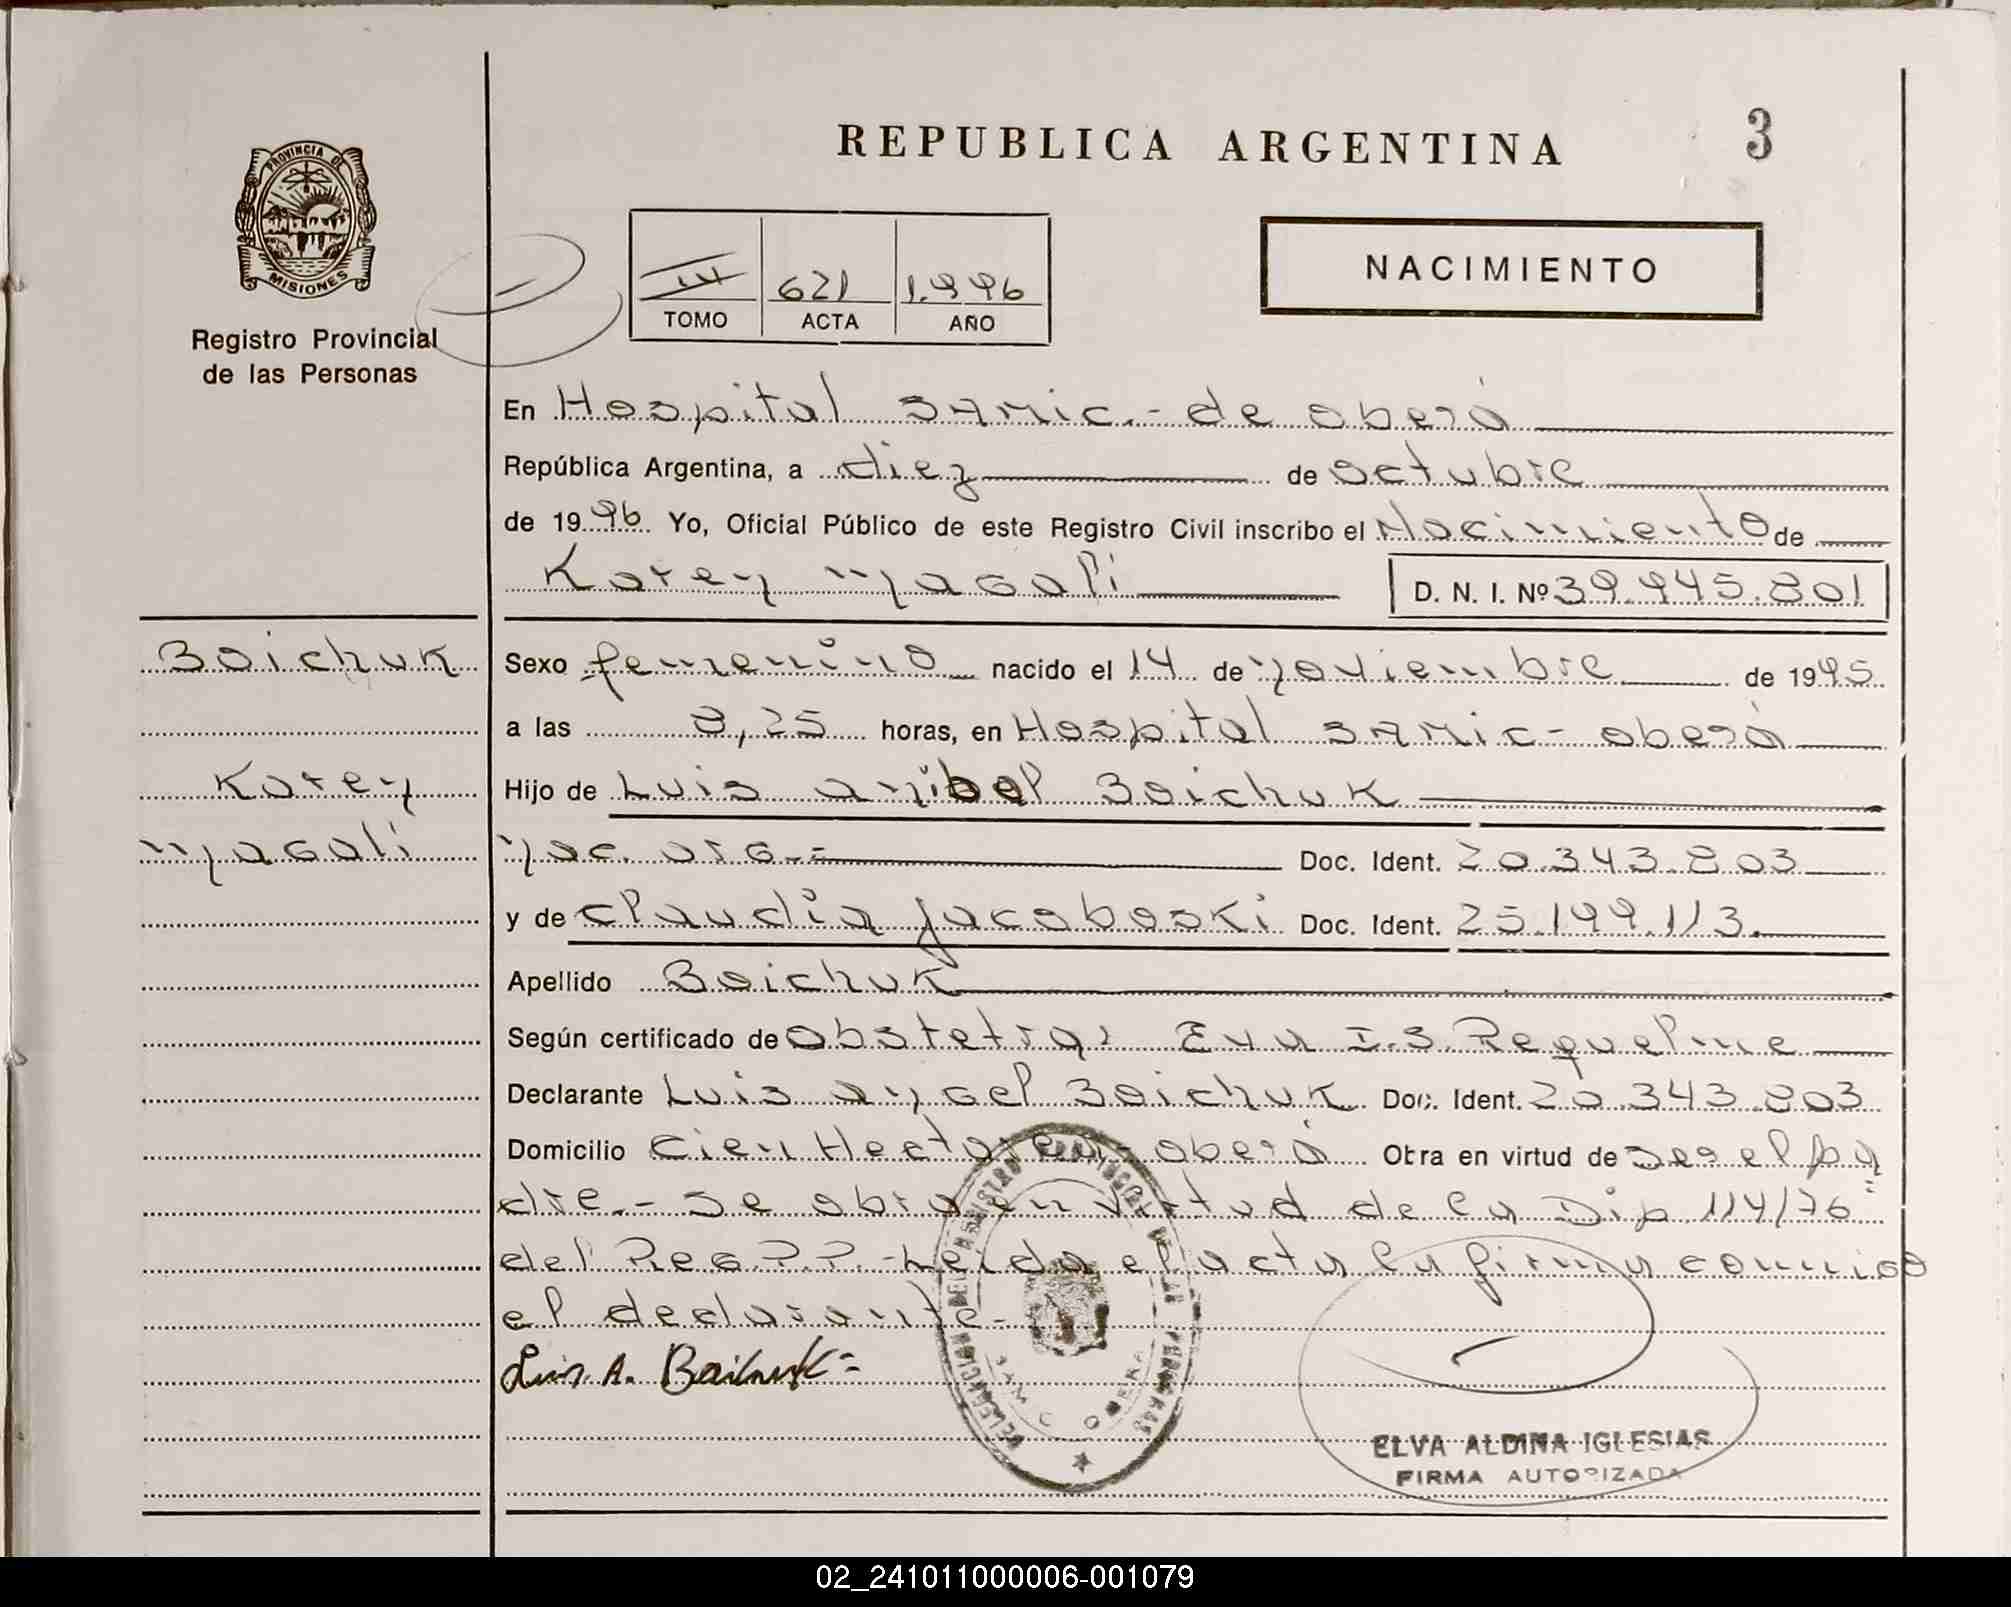 REPUBLICA ARGENTINA
3
PROVINCIA DE MISIONES
Registro Provincial
de las Personas
III 621 1.996
TOMO ACTA AÑO
NACIMIENTO
En Hospital SAMIC.- de oberá
República Argentina, a diez de octubre
de 1996 Yo, Oficial Público de este Registro Civil inscribo el Nacimiento de
Karen Magali D. N. I. Nº 39.945.801
Boichuk
Karen
Magali
Sexo femenino nacido el 14 de noviembre de 1995
a las 8,25 horas, en Hospital SAMIC- oberá
Hijo de Luis anibal Boichuk
nac. arg.= Doc. Ident. 20.343.803
y de claudia jacoboski Doc. Ident. 25.199.113.
Apellido Boichuk
Según certificado de obstetra: Eva I.S. Requelme
Declarante Luis angel Boichuk Doc. Ident. 20.343.803
Domicilio cien Hectarea- oberá Obra en virtud de ser el pa
dre.- se obra en virtud de la Dip 114/76
del Reg.P.P.- Leida el acta la firma conmigo
el declarante-
Luis. A. Boichuk=
DELEGACION DEL REGISTRO PROVINCIAL DE LAS PERSONAS
SAMIC OBERA
ELVA ALDINA IGLESIAS
FIRMA AUTORIZADA
02_241011000006-001079